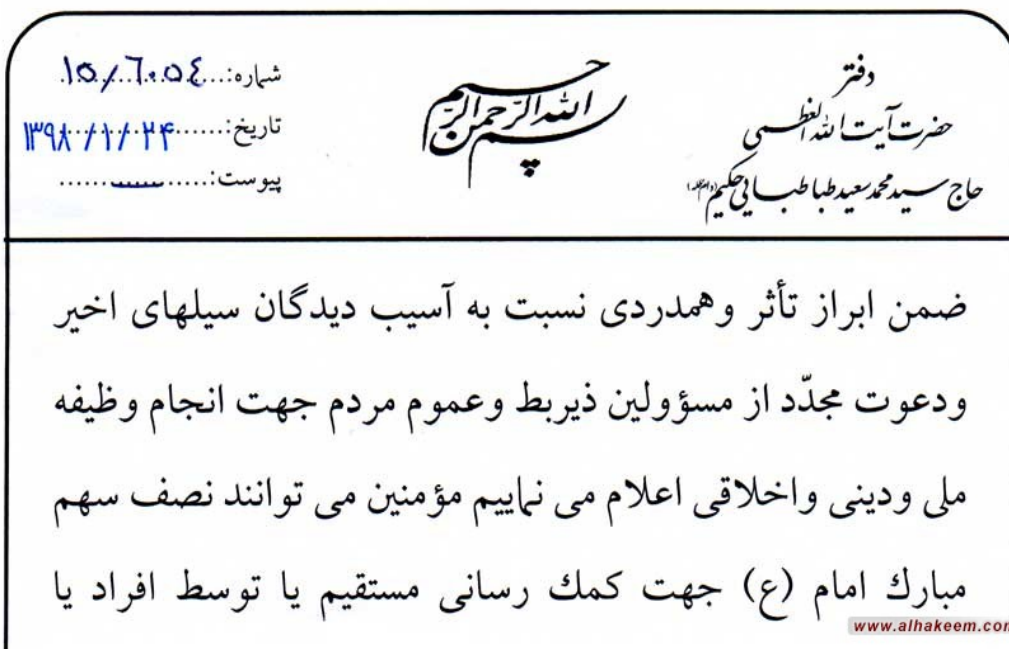 دفتر
حضرت آیت الله العظمی
حاج سید محمد سعید طباطبایی حکیم (دام ظله)
بسم الله الرحمن الرحیم
شماره: ١٥/٦٠٥٤
تاریخ: ۱۳۹۸/۱/۲۴
پیوست:
ضمن ابراز تأثر وهمدردی نسبت به آسیب دیدگان سیلهای اخیر
ودعوت مجدّد از مسؤولین ذیربط وعموم مردم جهت انجام وظیفه
ملی ودینی واخلاقی اعلام می نماییم مؤمنین می توانند نصف سهم
مبارك امام (ع) جهت كمك رسانی مستقیم یا توسط افراد یا
www.alhakeem.com